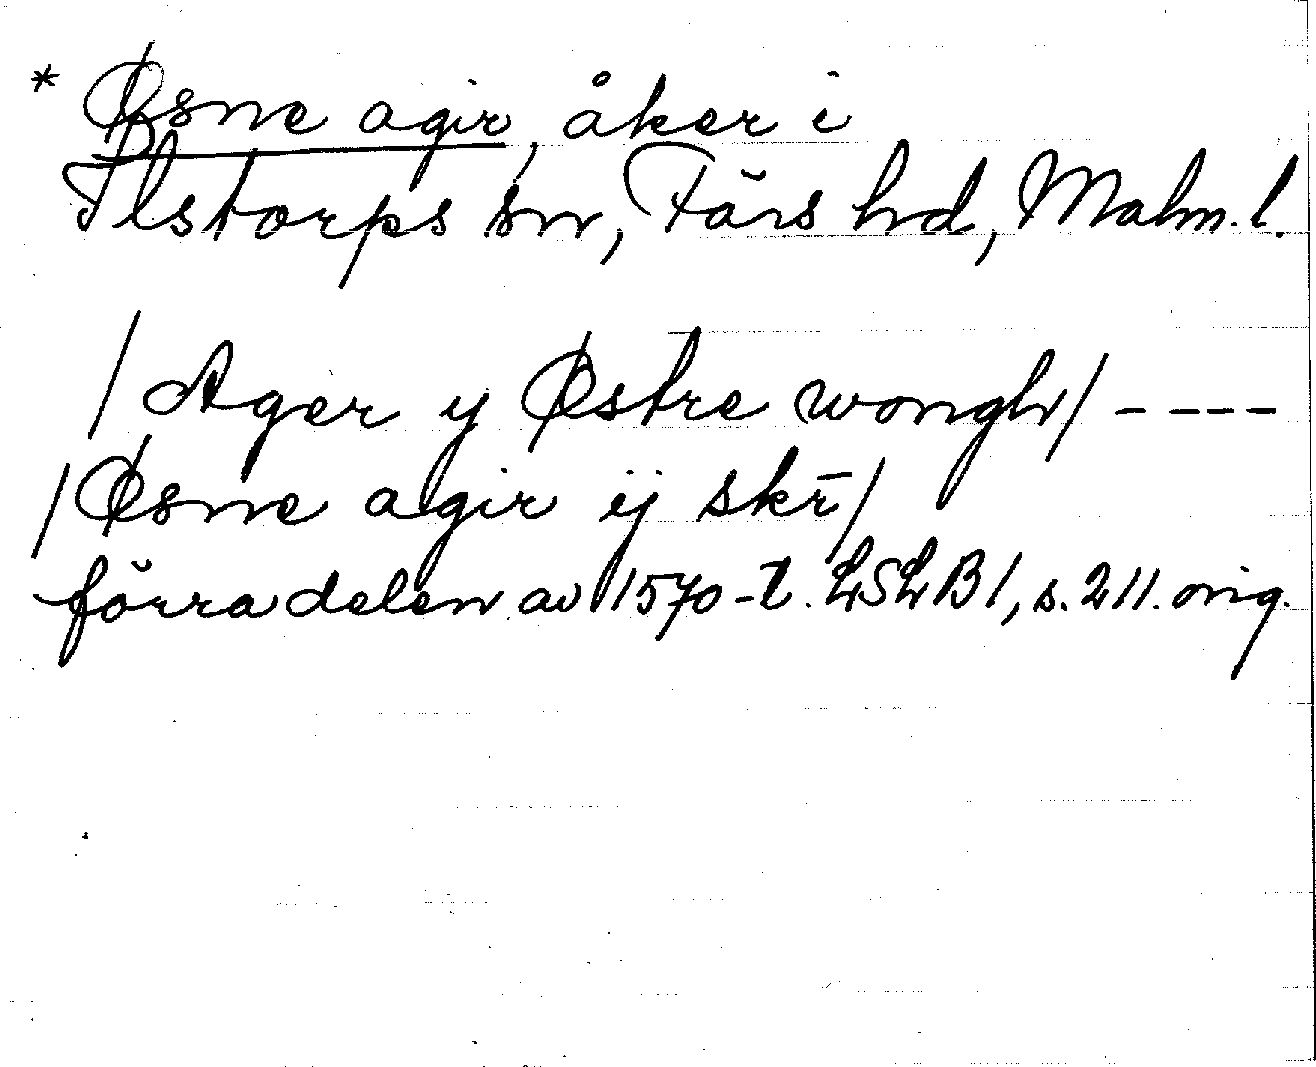 * Øsne agir, åker i
Ilstorps sn, Färs hd, Malm. l.
/Ager y Østre wongh/ - - - -
/Øsne agir ij skr̄/
förra delen av 1570-t. LSLB1, s. 211. orig.